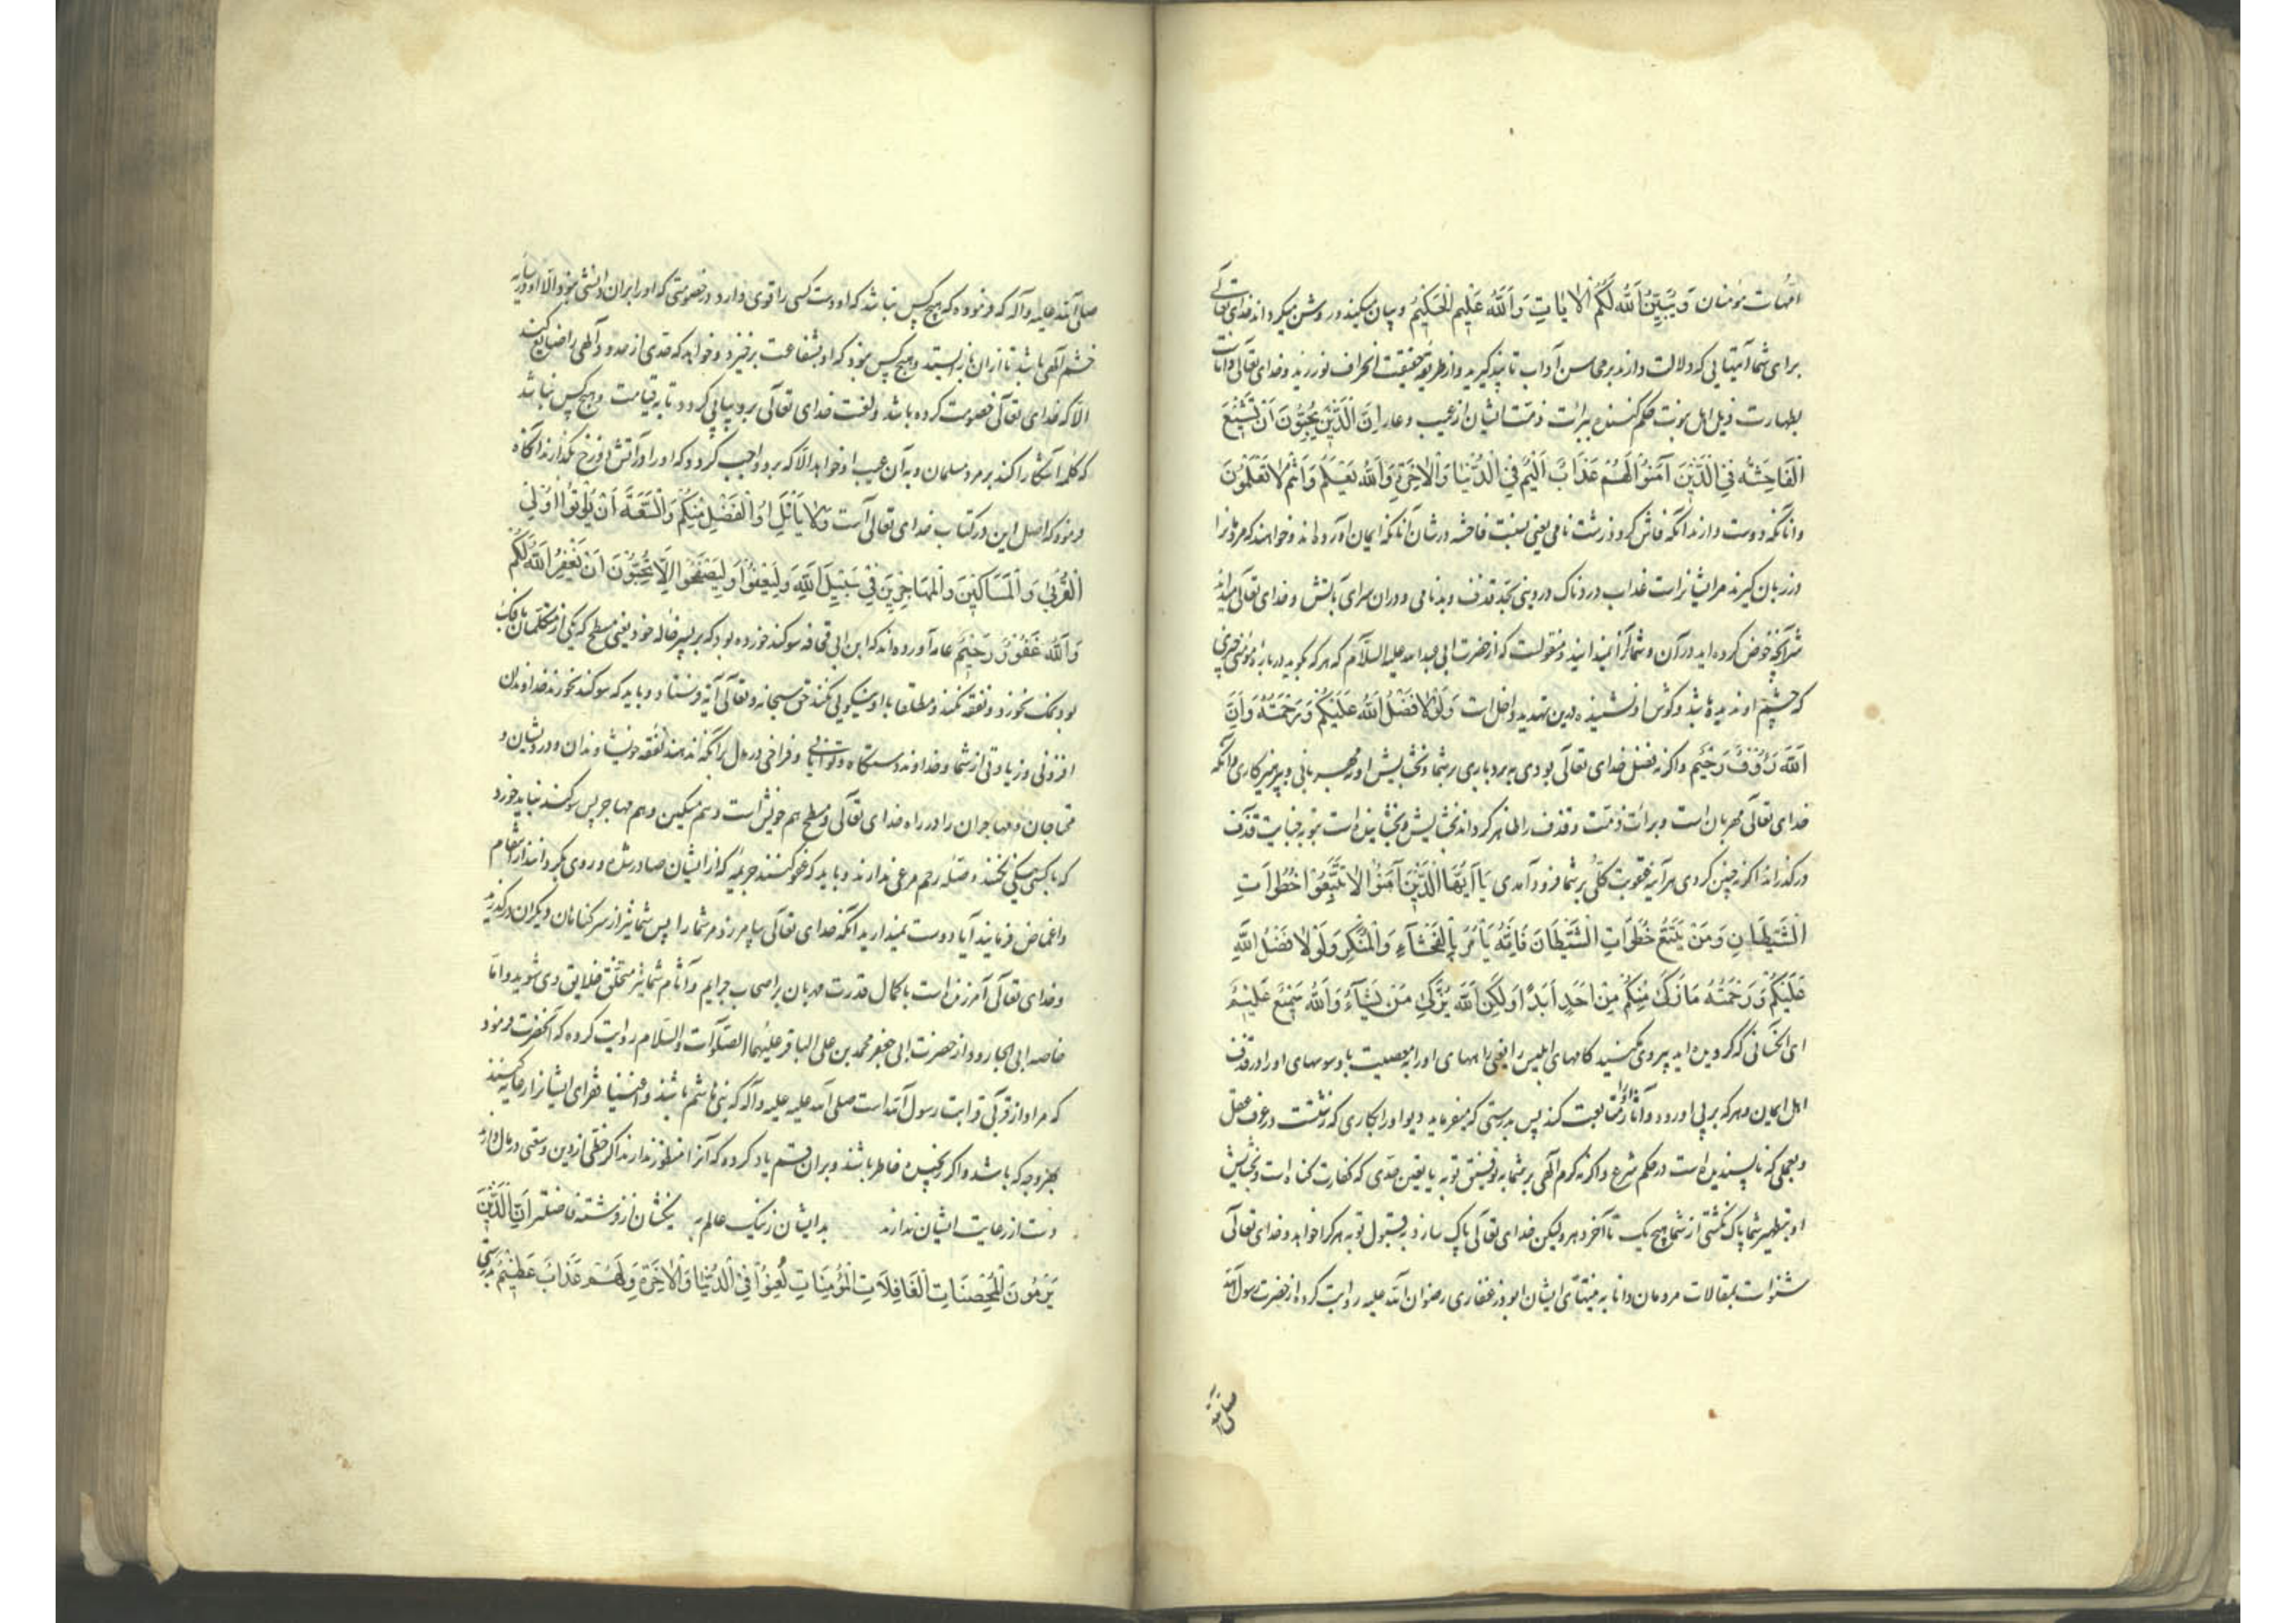 امّهات مؤمنان وَيُبَيِّنُ اللّٰهُ لَكُمُ الْاٰيَاتِ وَاللّٰهُ عَلِيمٌ الْحَكِيمُ و بیان میکند و روشن میکرداند خدای تعالی
برای شما آیتهایی که دلالت دارند بر محاسن آداب تا پند کیرید و از طریقه حقیقت انحراف نورزید و خدای تعالی داناست
بطهارت ذیل اهل نبوت حکم کننده ببرائت ذمّت ایشان از عیب و عار اِنَّ الَّذِيْنَ يُحِبُّوْنَ اَنْ تَشِيْعَ
الْفَاحِشَةُ فِي الَّذِيْنَ آمَنُوْا لَهُمْ عَذَابٌ اَلِيْمٌ فِي الدُّنْيَا وَالْاٰخِرَةِ وَاللّٰهُ يَعْلَمُ وَاَنْتُمْ لَا تَعْلَمُوْنَ
و آنانکه دوست دارند آنکه فاش کردد زشت نامی یعنی نسبت فاحشه در شان آنانکه ایمان آورده اند و خواهند که مردم آنرا
در زبان کیرند مر ایشانراست عذاب دردناک در دنیی بحدّ قذف و بدنامی و در ان سرای بآتش و خدای تعالی میداند
شر آنچه خوض کرده اید در آن و شما آنرا نمیدانید و منقولست که از حضرت ابی عبدالله علیه السّلام که هر که بگوید درباره مؤمنی چیزی
که چشم او ندیده باشد و کوش او نشنیده درین تهدید داخل است وَلَوْلَا فَضْلُ اللّٰهِ عَلَيْكُمْ وَرَحْمَتُهُ وَاَنَّ
اللّٰهَ رَؤُفٌ رَحِيْمٌ و اکر نه فضل خدای تعالی بودی به بردباری بر شما و بخشایش او و مهربانی و پرهیزکاری و آنکه
خدای تعالی مهربان است و برائت ذمّت و قذف را ظاهر کرداند بخشایش و بخشاینده است بتوبه جنایت قذف
در کذراند اکر نه چنین کردی هر آینه عقوبت کلّی بر شما فرود آمدی يَا اَيُّهَا الَّذِيْنَ آمَنُوْا لَا تَتَّبِعُوْا خُطُوَاتِ
الشَّيْطَانِ وَمَنْ يَتَّبِعْ خُطُوَاتِ الشَّيْطَانِ فَاِنَّهُ يَاْمُرُ بِالْفَحْشَآءِ وَالْمُنْكَرِ وَلَوْلَا فَضْلُ اللّٰهِ
عَلَيْكُمْ وَرَحْمَتُهُ مَا زَكَىٰ مِنْكُمْ مِنْ اَحَدٍ اَبَدًا وَلٰكِنَّ اللّٰهَ يُزَكِّي مَنْ يَشَآءُ وَاللّٰهُ سَمِيْعٌ عَلِيْمٌ
ای انکسانی که کرویده اید پیروی مکنید کامهای ابلیس را یعنی راههای او را به معصیت با وسوسهای او را در قذف
اهل ایمان و هر که بر پی او رود و آثار او را متابعت کند پس بدرستی که میفرماید دیو او را بکاری که زشتست در عرف عقل
و بعملی که ناپسندیده است در حکم شرع و اکر نه کرم الهی بر شما به توفیق توبه یا تعیین حدّی که کفارت کناه است و بخشایش
او بتطهیر شما پاک نکشتی از شما هیچ یک تا آخر دهر ولیکن خدای تعالی پاک سازد به قبول توبه هر کرا خواهد و خدای تعالی
شنواست بمقالات مردمان دانا به نیتهای ایشان ابوذر غفاری رضوان الله علیه روایت کرده از حضرت رسول الله
صلی الله
صلی الله علیه و آله که فرموده که هیچ کس نباشد که او دست کسی را قوی دارد در خصومتی که او را بران دانشی نبود الّا او در سایه
خشم الهی باشد تا از ان باز ایستد و هیچ کس نبود که او بشفاعت برخیزد و خواهد که حدی از حدود الهی را ضایع کند
الّا که خدای تعالی خصومت کرده باشد و لعنت خدای تعالی برو پیاپی کردد تا به قیامت و هیچ کس نباشد
که کلمه آشکارا کند بر مرد مسلمان و به آن عیب او خواهد الّا که برو واجب کردد که او را در آتش دوزخ بکدازند آنکاه
فرمود که اصل این در کتاب خدای تعالی است وَلَا يَأْتَلِ اُولُوا الْفَضْلِ مِنْكُمْ وَالسَّعَةِ اَنْ يُؤْتُوْا اُوْلِي
الْقُرْبٰى وَالْمَسَاكِيْنَ وَالْمُهَاجِرِيْنَ فِيْ سَبِيْلِ اللّٰهِ وَلْيَعْفُوْا وَلْيَصْفَحُوْا اَلَا تُحِبُّوْنَ اَنْ يَغْفِرَ اللّٰهُ لَكُمْ
وَاللّٰهُ غَفُوْرٌ رَحِيْمٌ عامه آورده اند که ابن ابی قحافه سوکند خورده بود که بر پسر خاله خود یعنی مسطح که یکی از متکلمان بافک
بود نمک نخورد و نفقه نکند و مطلقا با او نیکویی نکند حق سبحانه و تعالی آیه فرستاد و باید که سوکند نخورند خداوندان
افزونی و زیادتی از شما و خداوند دستکاه و توانایی و فراخی در مال بر آنکه ندهند نفقه خویشاوندان و درویشان و
محتاجان و مهاجران را در راه خدای تعالی و مسطح هم خویش است و هم مسکین و هم مهاجر پس سوکند نباید خورد
که با کسی نیکی نکنند و صله رحم مرعی ندارند و باید که عفو کنند جریمه که از ایشان صادر شده و روی بکردانند از انتقام
و اغماض فرمایند آیا دوست نمیدارید آنکه خدای تعالی بیامرزد مر شما را پس شما نیز از سر کناهان دیکران در کذرید
و خدای تعالی آمرزنده است با کمال قدرت مهربان بر اصحاب جرایم و آثام شما نیز متخلق خلایق وی شوید و امّا
خاصه ابی الجارود از حضرت ابی جعفر محمد بن علی الباقر علیهما الصلوات و السّلام روایت کرده که آنحضرت فرمود
که مراد از قربی قرابت رسول الله است صلی الله علیه علیه و آله که بنی هاشم باشند و اغنیا فقرای ایشانرا رعایه کنند
بهر وجه که باشد و اکر رنجیده خاطر باشند و بران قسم یاد کرده که آنرا منظور ندارند اکر حظّی از دین و سعتی در مال دارند
دست از رعایت ایشان ندارند بد ایشان ز نیک عالم به نیکشان از فرشته فاضلتر اِنَّ الَّذِيْنَ
يَرْمُوْنَ الْمُحْصَنَاتِ الْغَافِلَاتِ الْمُؤْمِنَاتِ لُعِنُوْا فِيْ الدُّنْيَا وَالْاٰخِرَةِ وَلَهُمْ عَذَابٌ عَظِيْمٌ بدرستی